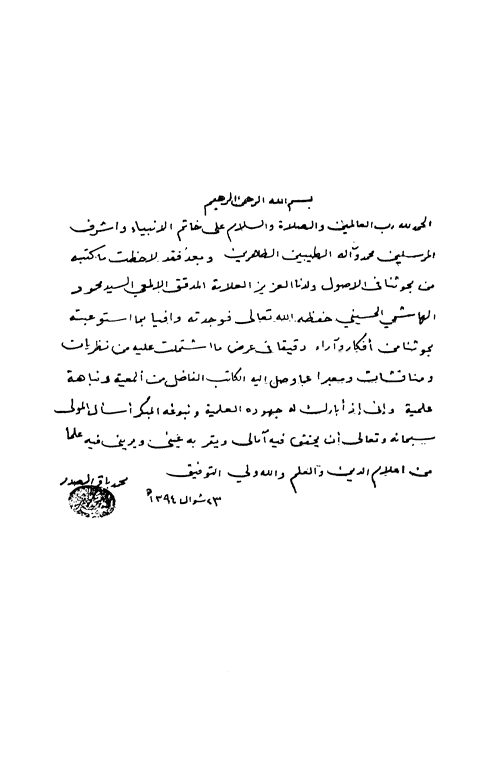 بسم الله الرحمن الرحيم
الحمد لله رب العالمين والصلاة والسلام على خاتم الانبياء واشرف
المرسلين محمد وآله الطيبين الطاهرين وبعد فقد لاحظت ما كتبه
من بحوثنا في الاصول ولدنا العزيز العلامة المدقق الالمعي السيد محمود
الهاشمي الحسيني حفظه الله تعالى فوجدته وافيا بما استوعبته
بحوثنا من أفكار وآراء دقيقا في عرض ما اشتملت عليه من نظريات
ومناقشات ومعبرا عما وصل اليه الكاتب الفاضل من ألمعية ونباهة
علمية واني إذ أبارك له جهوده العلمية ونبوغه المبكر أسأل المولى
سبحانه وتعالى أن يحقق فيه آمالي ويقر به عيني ويريني فيه علما
من اعلام الدين والعلم والله ولي التوفيق
محمد باقر الصدر
٢٣ شوال ١٣٩٤ ه